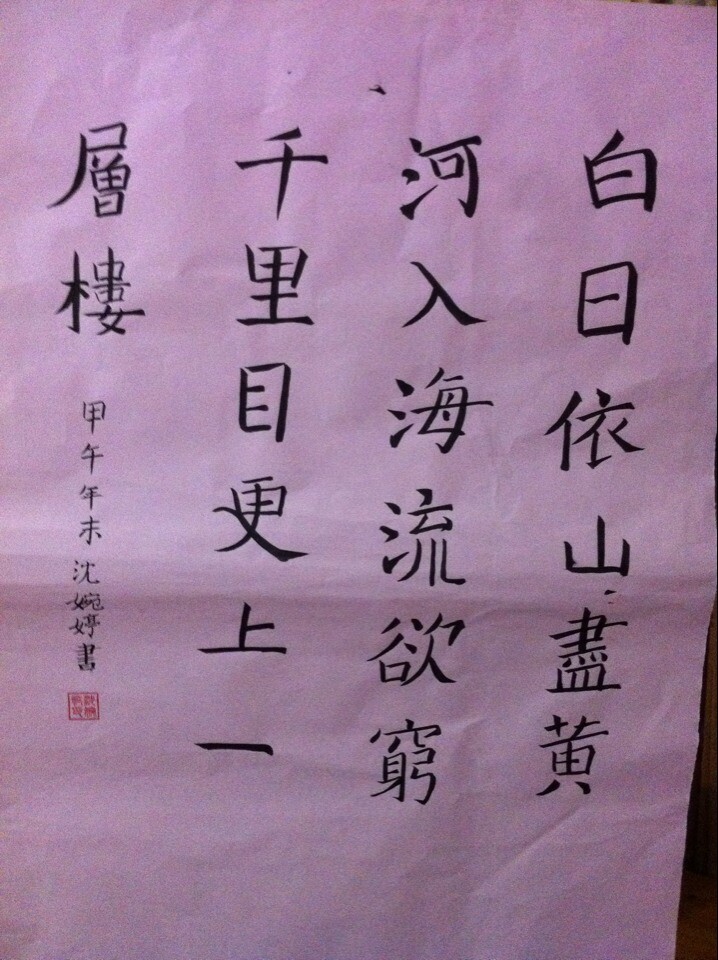 白日依山盡黃
河入海流欲窮
千里目更上一
層樓
甲午年末沈婉婷書